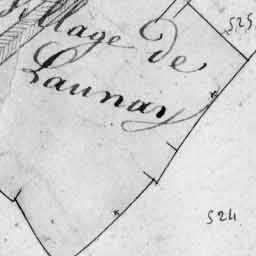 Village de
Launay
525
524